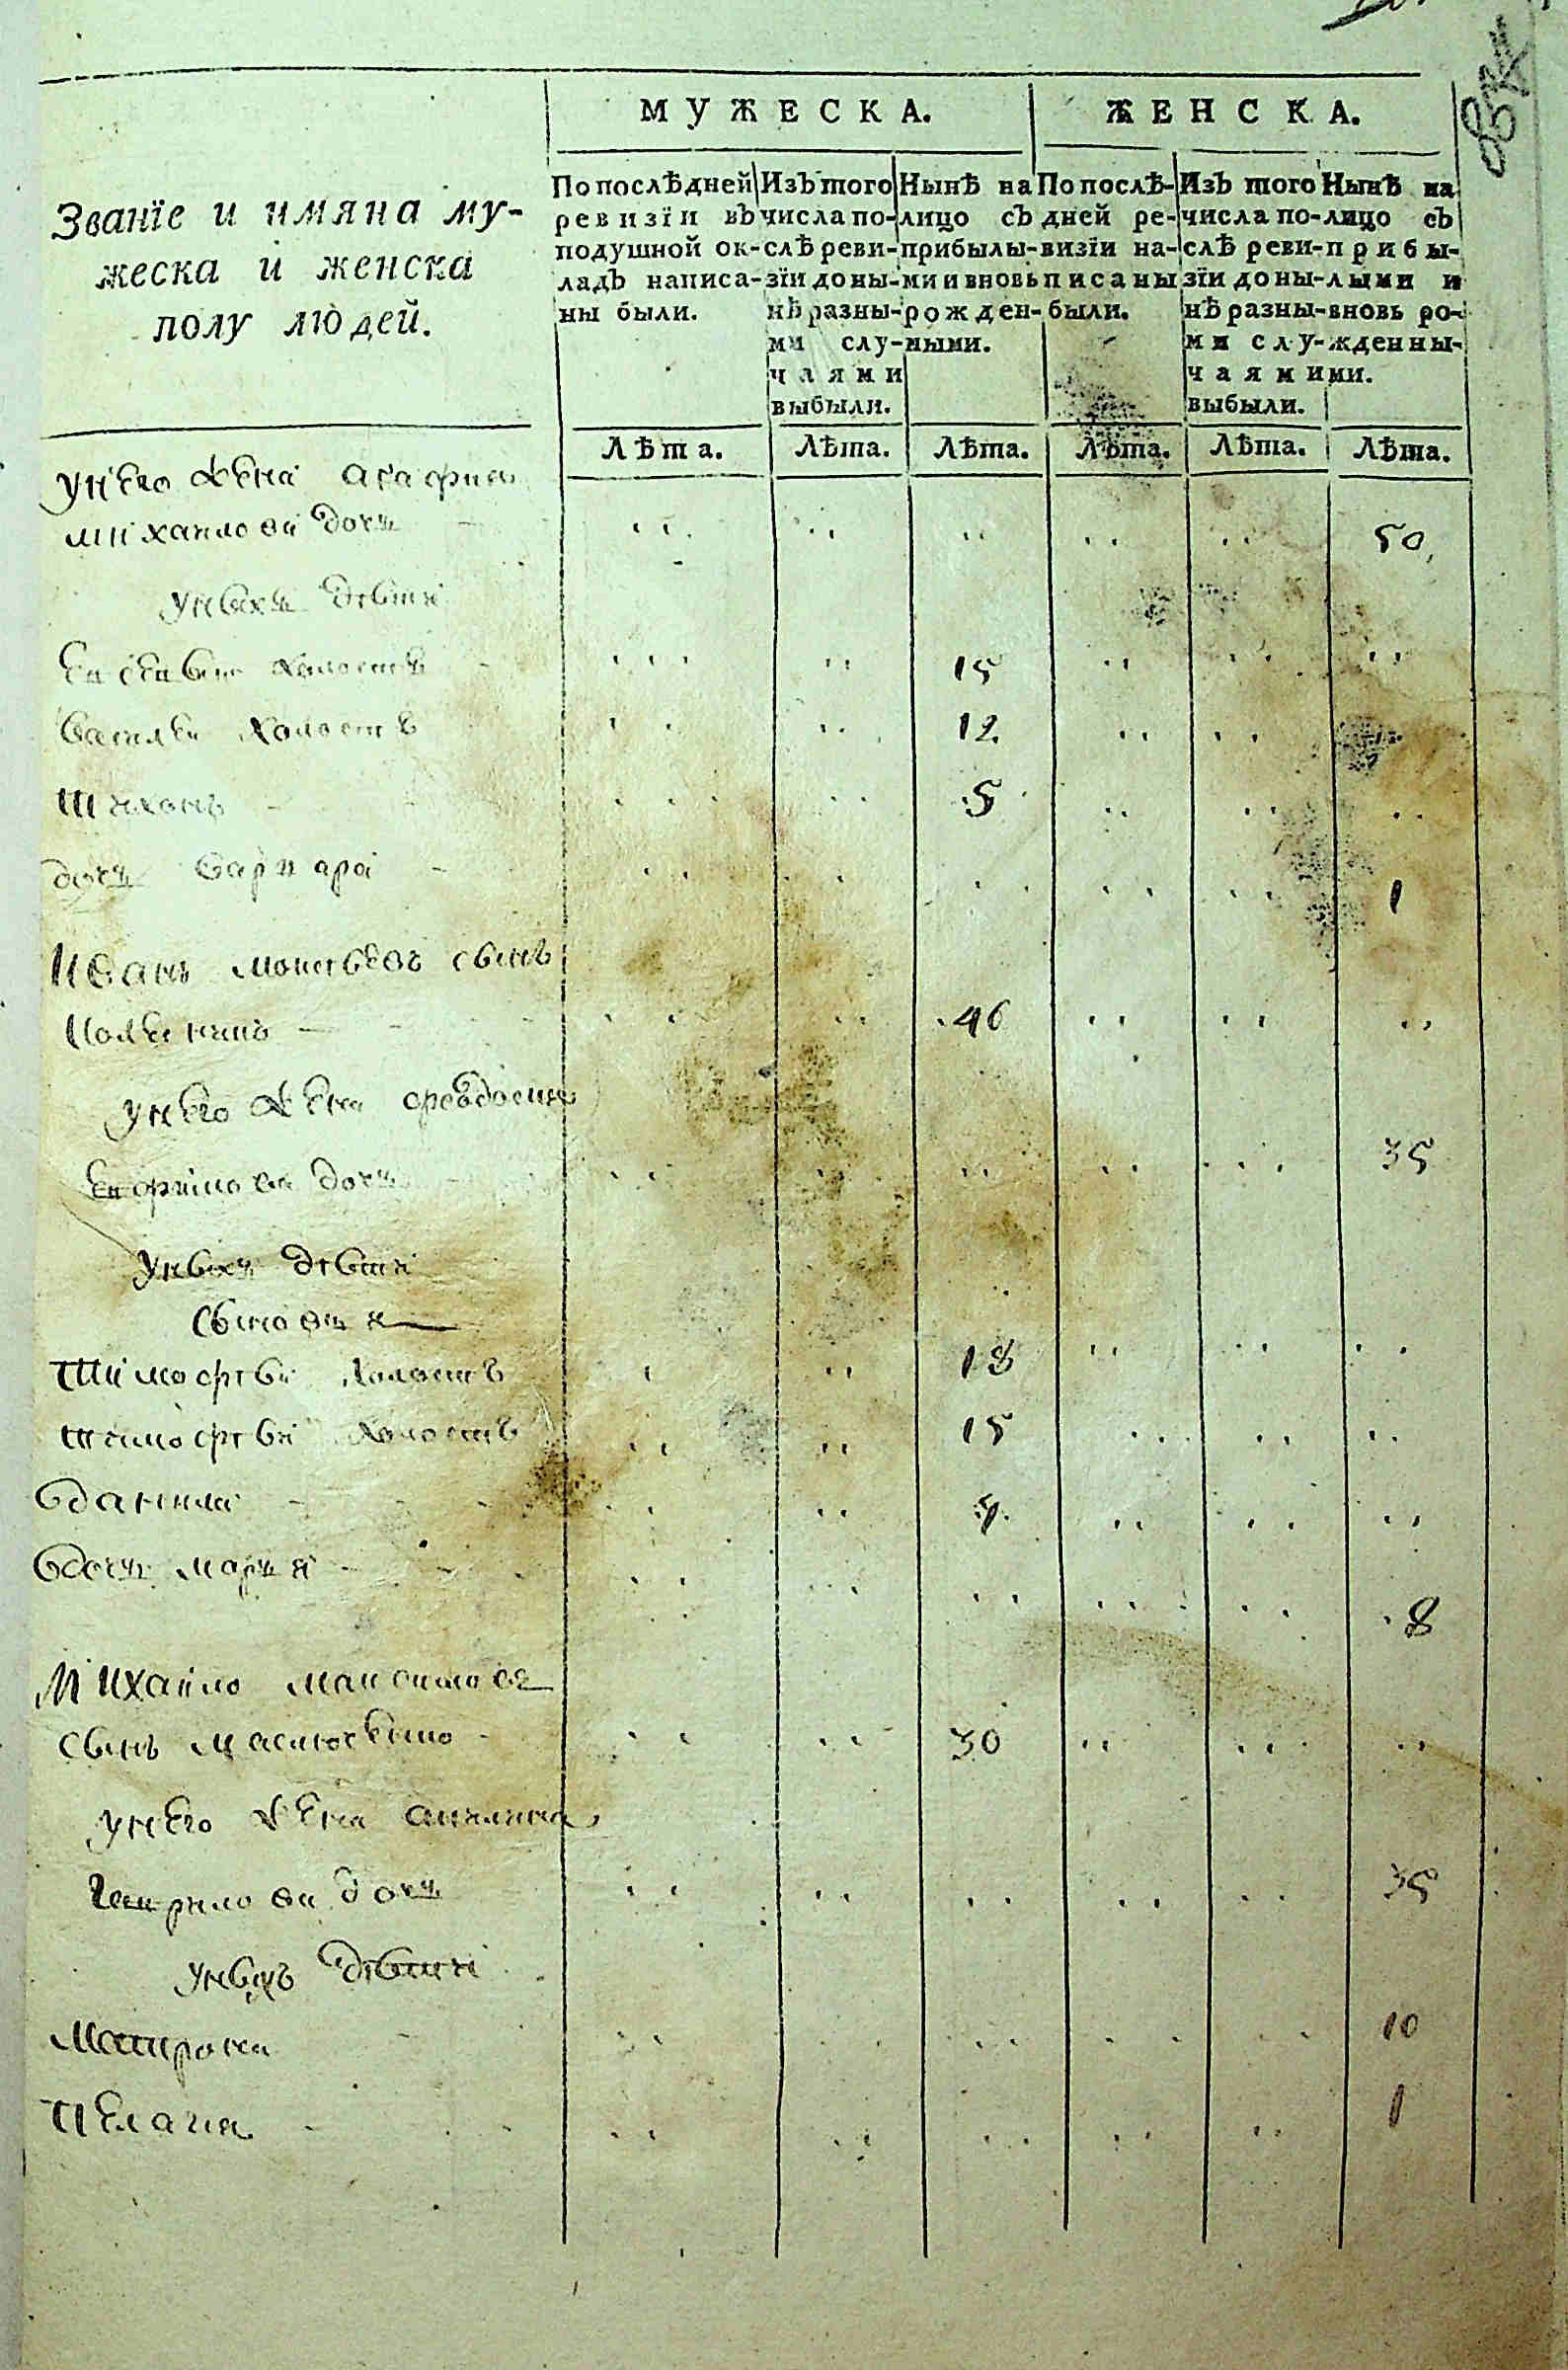 МУЖЕСКА. ЖЕНСКА.
Званїе и имяна му-
жеска и женска
полу людей.
По послѣдней ревизїи въ подушной окладъ написаны были.
Изъ того числа послѣ ревизїи донынѣ разными случаями выбыли.
Нынѣ на лицо съ прибылыми и вновь рожденными.
По послѣдней ревизїи написаны были.
Изъ того числа послѣ ревизїи донынѣ разными случаями выбыли.
Нынѣ на лицо съ прибылыми и вновь рожденными.
Лѣта. Лѣта. Лѣта. Лѣта. Лѣта. Лѣта.
у него жена агафия
михаилова дочь 50
у них дѣти
холостъ 15
василеи холостъ 12
тихонъ 5
дочь варвара 1
Иванъ сынъ
46
у него жена февдосия
ефимова дочь 35
у них дѣти
сыновья
Тимофѣи холостъ 18
тимофѣи холостъ 15
данила
дочь марья 8
Михаило максимовъ
сынъ 30
у него жена акилина
гаврилова дочь 35
у нихъ дѣти
Матрона 10
Пелагия 1